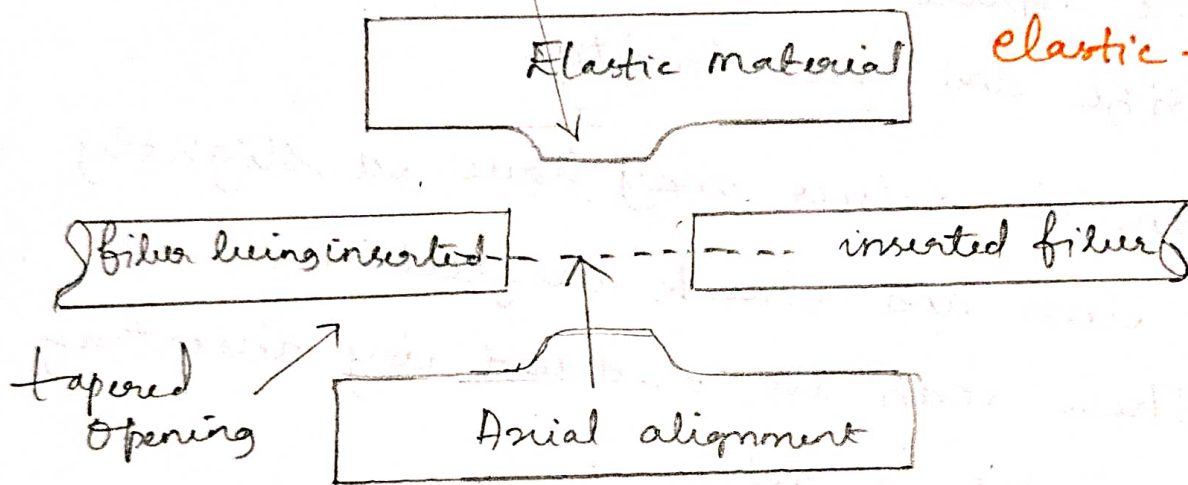 Elastic material
elastic.
fiber being inserted
inserted fiber
tapered
opening
Axial alignment